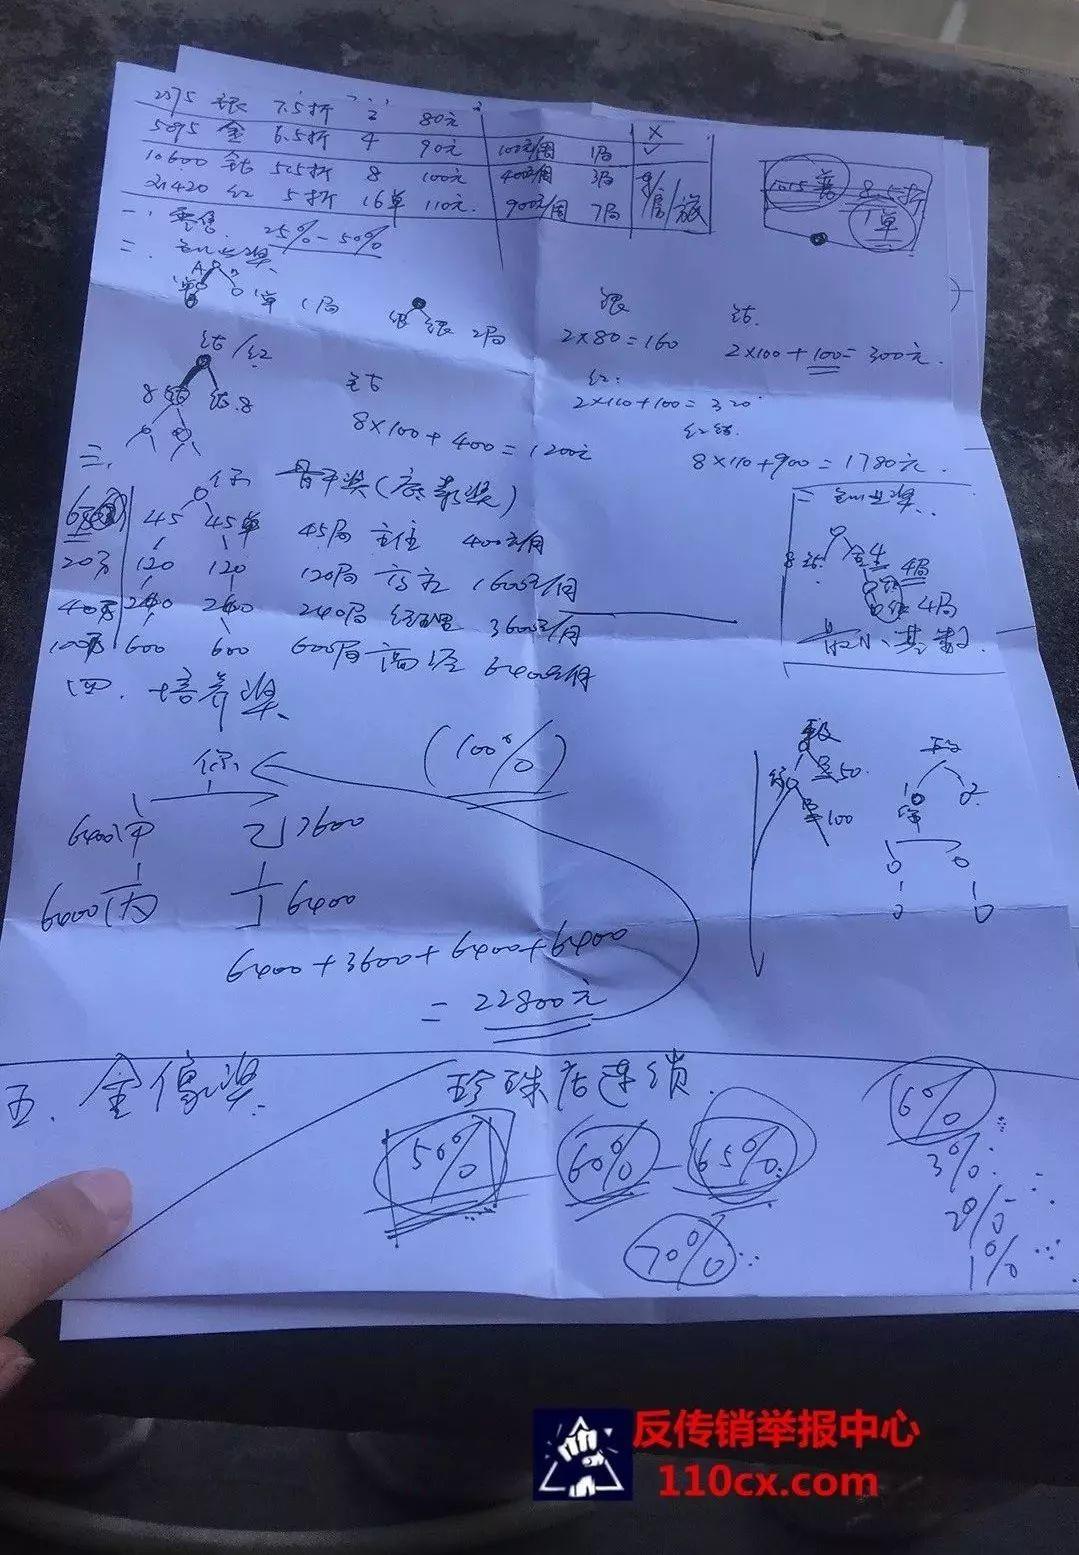 2575 银 7.5折 2 80元
5095 金 6.5折 4 90元 100元/周 1局 ×
10600 钻 5.5折 8 100元 400元/周 3局 ✓
21420 红 5折 16单 110元 900元/周 7局 车/房/旅
8.5折
1单
一. 零售 25%-50%
二.
A
1单 1单 1局
银 银 2局
银
2×80=160
钻.
2×100+100=300元.
钻/红
8钻 钻.8
钻
8×100+400=1200元
红:
2×110+100=320
红钻.
8×110+900=1780元.
三. 你 骨干奖
45 45单 45局 主任 400元/周
20万 120 120 120局 高主 1600元/周
40万 240 240 240局 经理 3600元/周
100万 600 600 600局 高经 6400元/周
二 创业奖
8钻
4局
4局
最小基数
四. 培养奖
你
(100%)
6400 甲 乙 3600
6400 丙 丁 6400
6400+3600+6400+6400
=22800元
50.
100
五. 金像奖 珍珠店连锁.
50% 60% 65%
70%
6%
3%
2%
1%
反传销举报中心
110cx.com